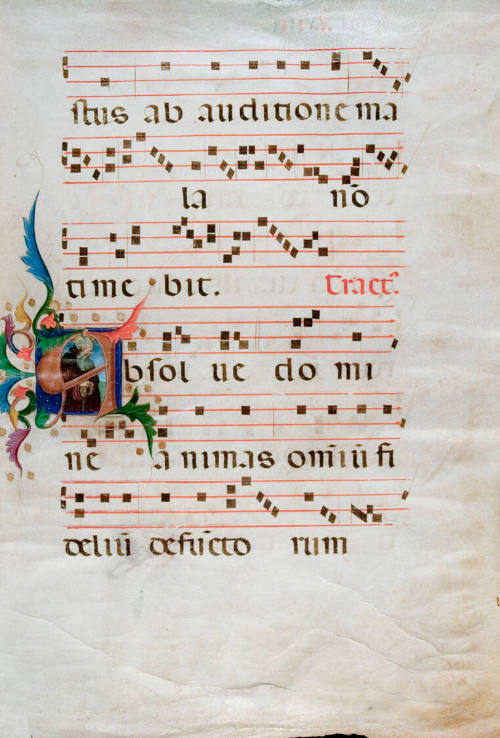 stus ab auditione ma
la nō
time bit. Tract⁹.
Absol ue do mi
ne animas omīū fi
deliū defūcto rum